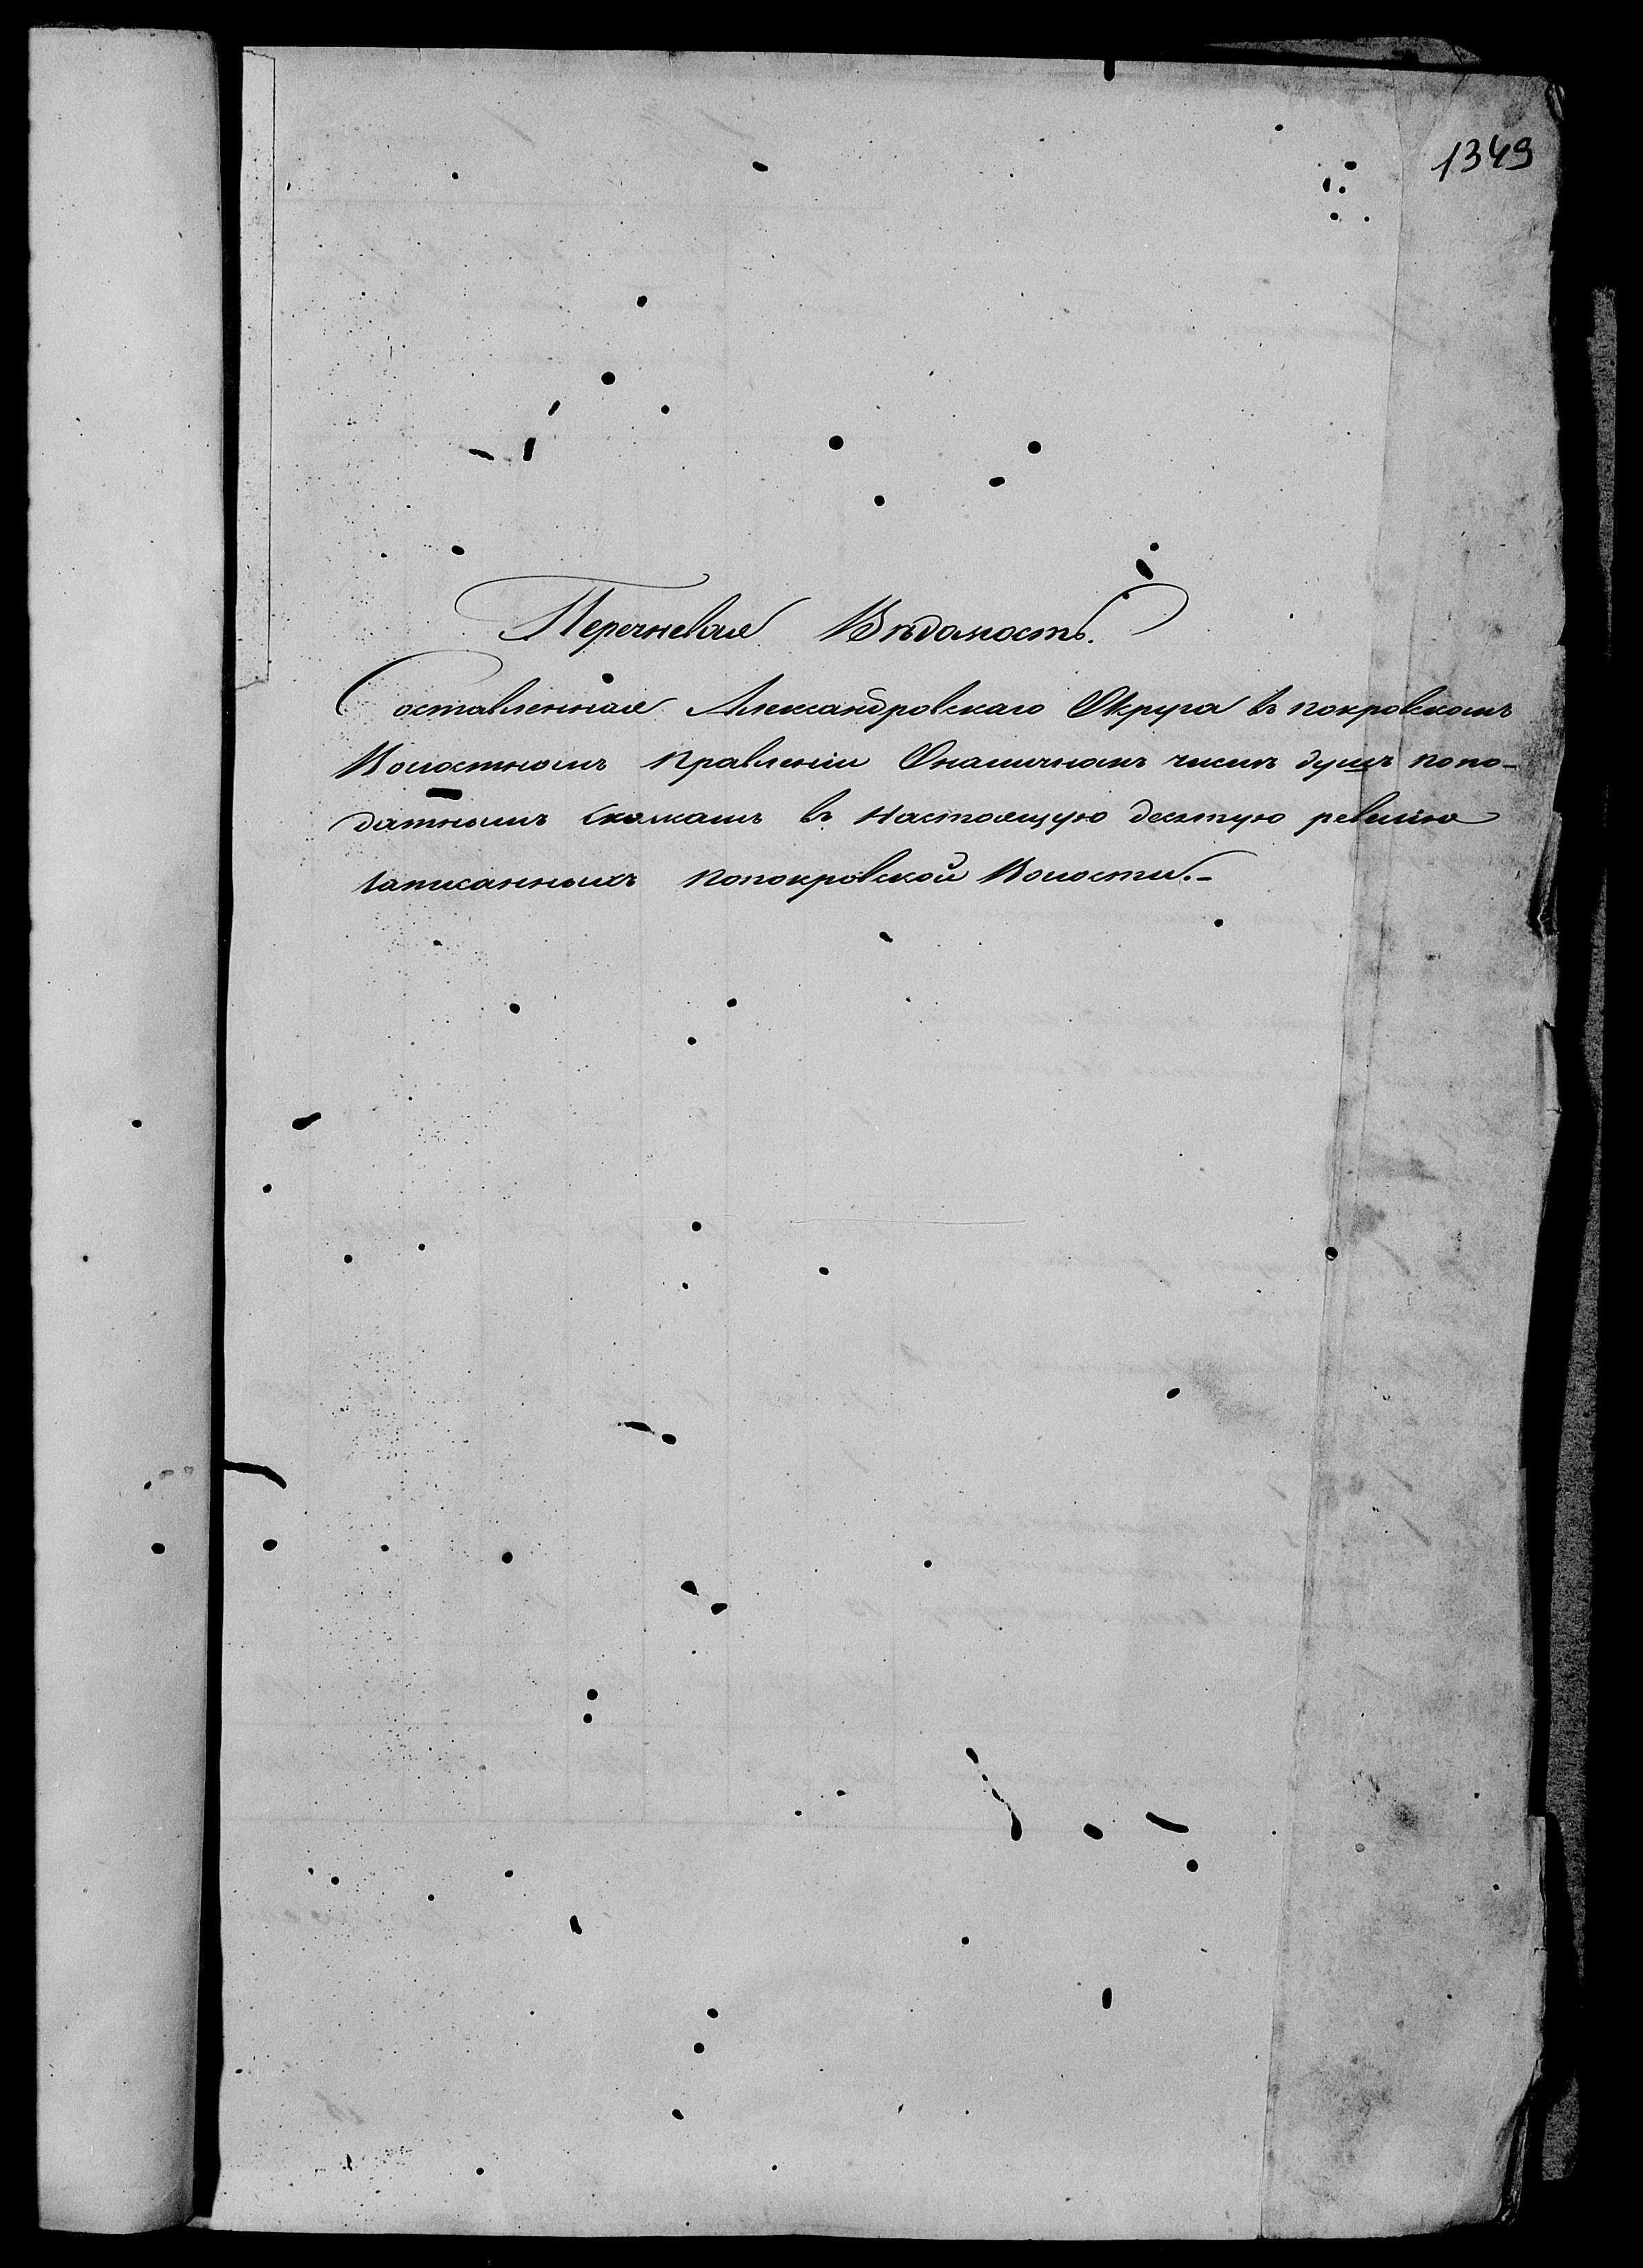 1349
Перечневая Вѣдомость.
Составленная Александровскаго Округа въ покровскомъ
Волостномъ Правленіи Оналичномъ числѣ душъ попо-
датнымъ скаскамъ въ настоящую десятую ревизію
записанныхъ Попокровской Волости.-